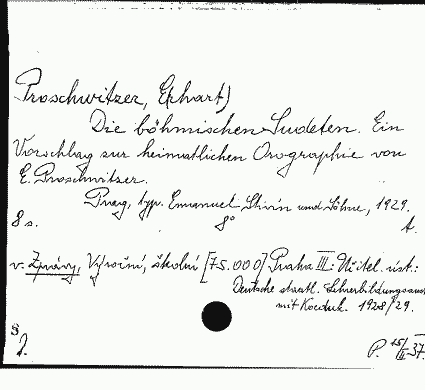 Proschwitzer, Erhart)
Die böhmischen Sudeten. Ein
Vorschlag zur heimatlichen Orographie von
E. Proschwitzer.
Prag, typ. Emanuel Stivín und Söhne, 1929.
8 s. 8° t.
v. Zprávy, Výroční, školní [75.000] Praha III: Učitel. úst.:
Deutsche staatl. Lehrerbildungsanst
mit Koeduk. 1928/29.
P. 15/II 37.